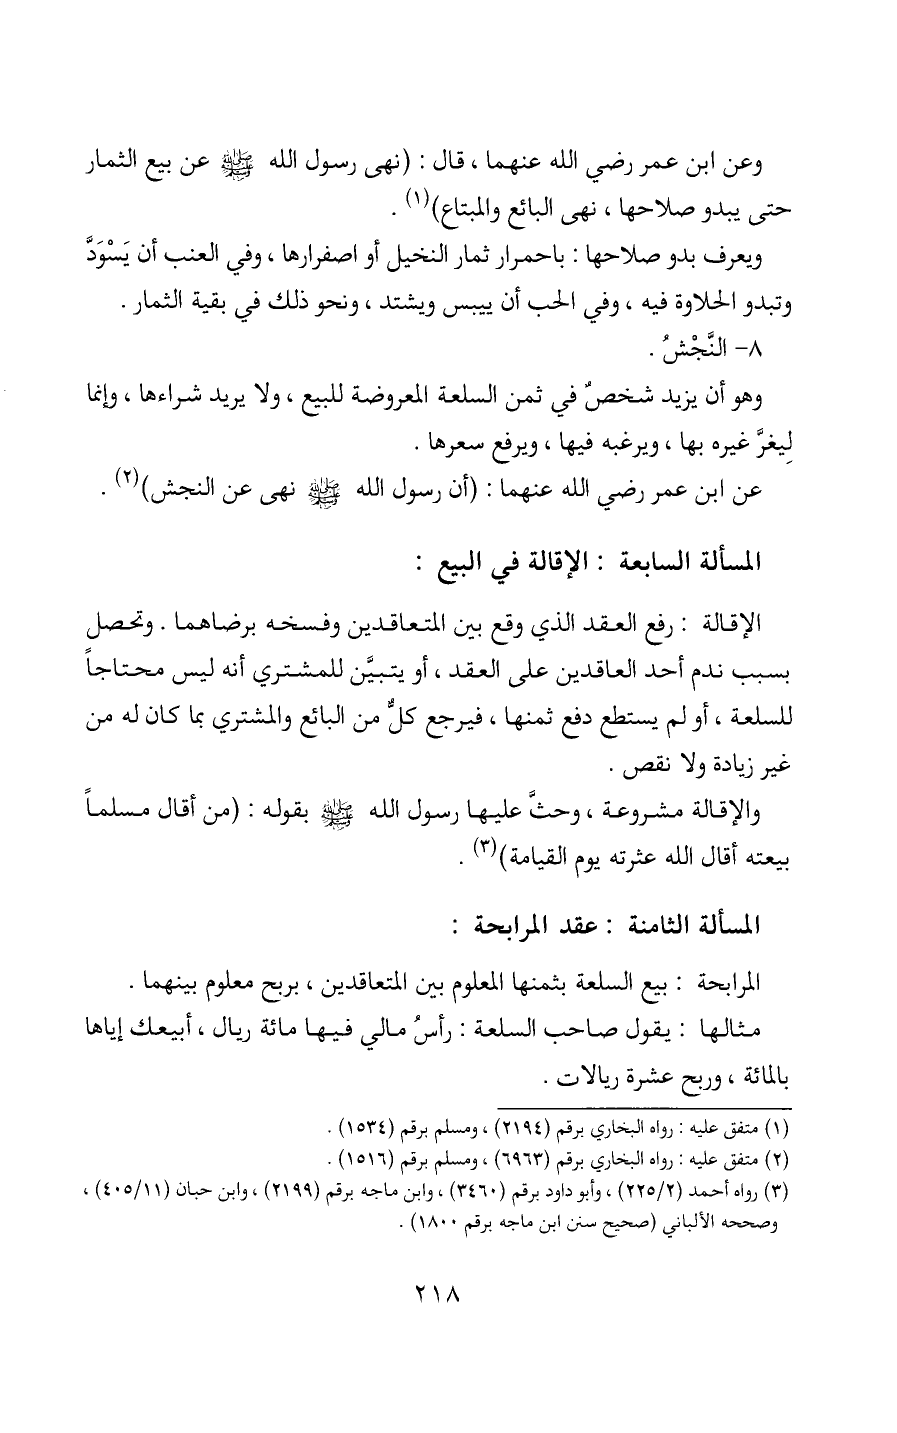 وعن ابن عمر رضي الله عنهما ، قال : (نهى رسول الله ﷺ عن بيع الثمار
حتى يبدو صلاحها ، نهى البائع والمبتاع)(١) .
ويعرف بدو صلاحها : باحمرار ثمار النخيل أو اصفرارها ، وفي العنب أن يَسْوَدَّ
وتبدو الحلاوة فيه ، وفي الحب أن ييبس ويشتد ، ونحو ذلك في بقية الثمار .
٨- النَّجْشُ .
وهو أن يزيد شخصٌ في ثمن السلعة المعروضة للبيع ، ولا يريد شراءها ، وإنما
لِيغرَّ غيره بها ، ويرغبه فيها ، ويرفع سعرها .
عن ابن عمر رضي الله عنهما : (أن رسول الله ﷺ نهى عن النجش)(٢) .
المسألة السابعة : الإقالة في البيع :
الإقالة : رفع العقد الذي وقع بين المتعاقدين وفسخه برضاهما . وتحصل
بسبب ندم أحد العاقدين على العقد ، أو يتبيَّن للمشتري أنه ليس محتاجاً
للسلعة ، أو لم يستطع دفع ثمنها ، فيرجع كلٌّ من البائع والمشتري بما كان له من
غير زيادة ولا نقص .
والإقالة مشروعة ، وحثَّ عليها رسول الله ﷺ بقوله : (من أقال مسلماً
بيعته أقال الله عثرته يوم القيامة)(٣) .
المسألة الثامنة : عقد المرابحة :
المرابحة : بيع السلعة بثمنها المعلوم بين المتعاقدين ، بربح معلوم بينهما .
مثالها : يقول صاحب السلعة : رأسُ مالي فيها مائة ريال ، أبيعك إياها
بالمائة ، وربح عشرة ريالات .
(١) متفق عليه : رواه البخاري برقم (٢١٩٤) ، ومسلم برقم (١٥٣٤) .
(٢) متفق عليه : رواه البخاري برقم (٦٩٦٣) ، ومسلم برقم (١٥١٦) .
(٣) رواه أحمد (٢/ ٢٢٥) ، وأبو داود برقم (٣٤٦٠) ، وابن ماجه برقم (٢١٩٩) ، وابن حبان (١١/ ٤٠٥) ،
وصححه الألباني (صحيح سنن ابن ماجه برقم ١٨٠٠) .
٢١٨